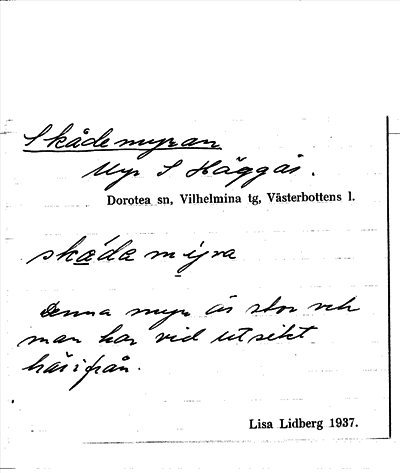 Skådemyran
Myr S Häggås.
Dorotea sn, Vilhelmina tg, Västerbottens l.
skåda mỳra
Denna myr är stor och
man har vid utsikt
härifrån.
Lisa Lidberg 1937.